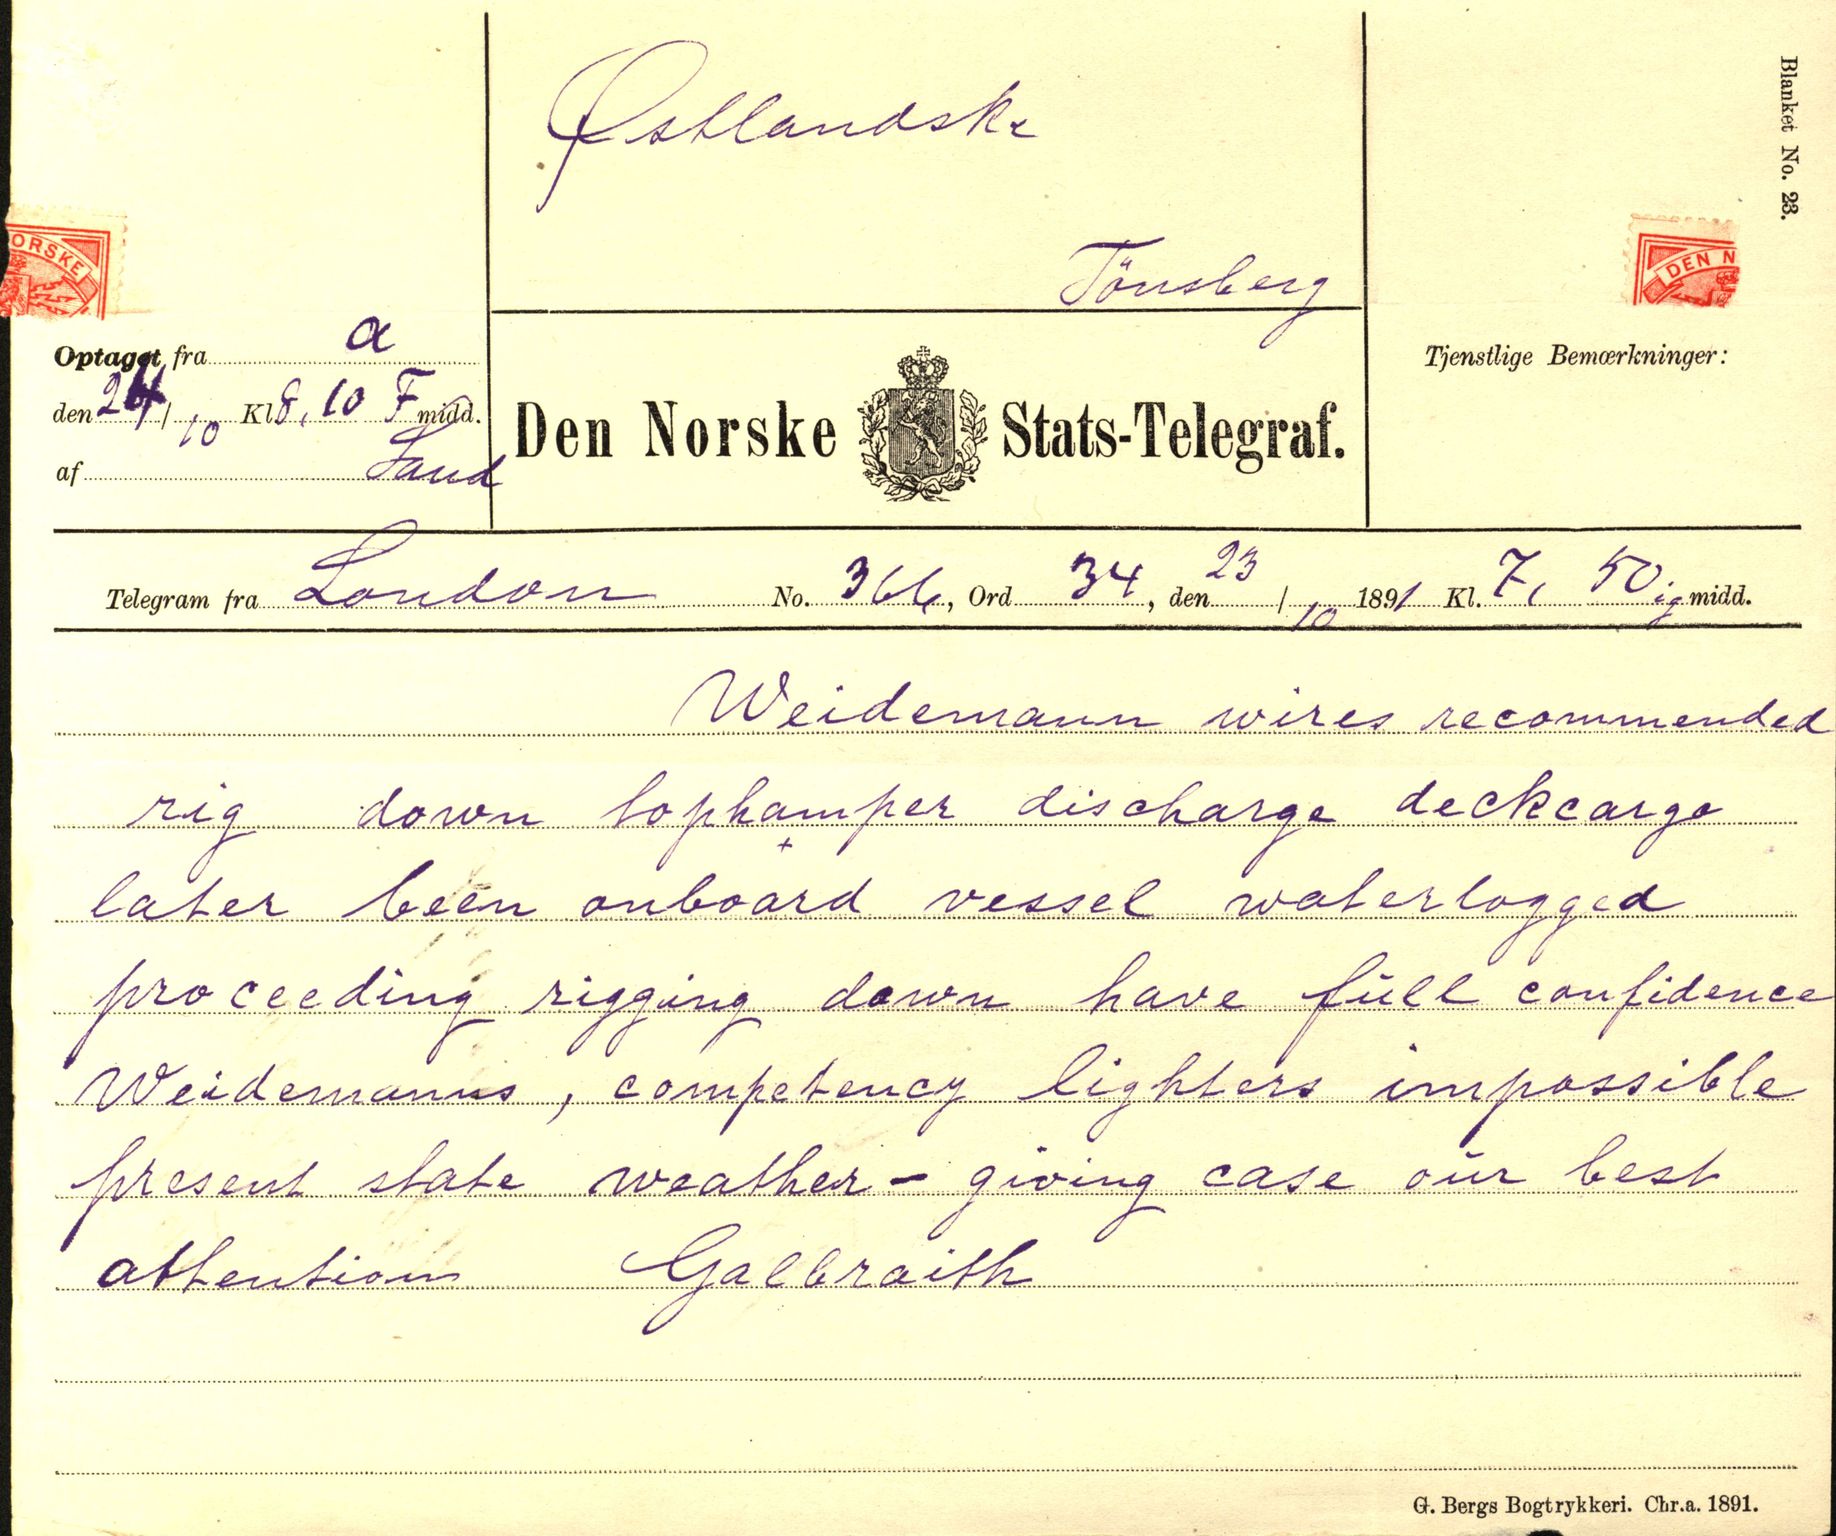 Østlandske
Tönsberg
Blanket No. 23.
ORSKE
DEN N
Optaget fra a
den 24/10 Kl 8,10 F midd.
af Sand
Den Norske Stats-Telegraf.
Tjenstlige Bemærkninger:
Telegram fra London No. 366, Ord 34, den 23/10 1891 Kl. 7, 50 ig midd.
Weidemann wires recommended
rig down tophamper discharge deckcargo
later been onboard vessel waterlogged
proceeding rigging down have full confidence
Weidemanns, competency lighters impossible
present state weather - giving case our best
attention Galbraith
G. Bergs Bogtrykkeri. Chr.a. 1891.